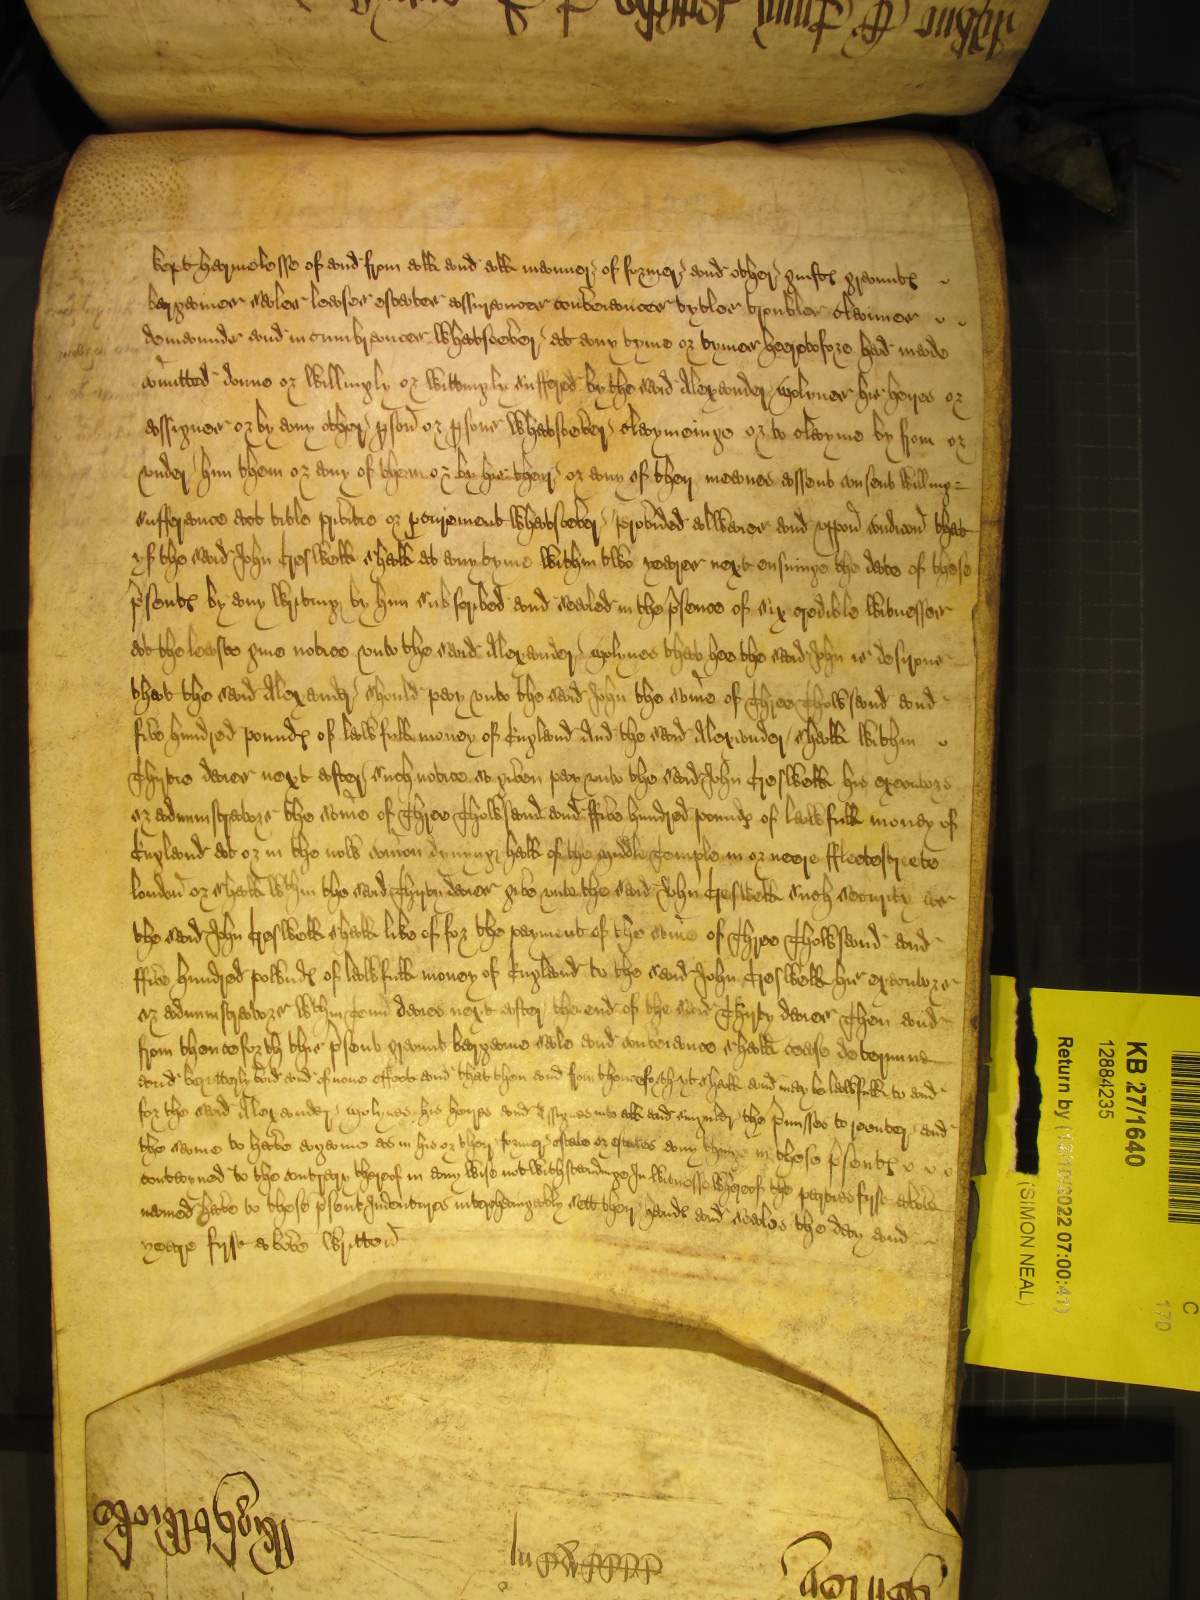 kept harmelesse of and from all and all manner of former and other guifts graunts
bargaines sales leases estates assurances conveiances tytles troubles claimes
demaunds and incumbrances whatsoever at any tyme or tymes heeretofore had made
comitted donne or willingly or wittingly suffered by the said Alexander Molynes his heyres or
assignes or by any other pson or psons whatsoever claymeinge or to clayme by from or
under him them or any of them or by his their or any of their meanes assent consent willing
sufferance act title privitie or pcurement whatsoever provided allwaies and uppon condicon that
yf the said John Creswell shall at any tyme within two yeares next ensuinge the date of these
psents by any writing by him subscribed and sealed in the psence of six credible witnesses
at the leaste give notice unto the said Alexander Molynes that hee the said John is desirous
that the said Alexander should pay unto the said John the some of Three Thowsand and
five hundred pounds of lawfull money of England And the said Alexander shall within
Thyrtie daies next after such notice so given pay unto the said John Creswell his executors
or administrators the some of Three Thowsand and ffive hundred pounds of lawfull money of
England at or in the now comon dyning hall of the middle Temple in or neere ffleetestreete
london or shall wthin the said Thyrty daies give unto the said John Creswell such security as
the said John Creswell shall like of for the payment of the some of Three Thowsand and
ffive hundred pownds of lawfull money of England to the said John Creswell his executors
or administrators wthin Tenn daies next after the end of the said Thyrty daies Then and
from thenceforth this psent graunt bargaine sale and conveiance shall cease determine
and be utterly void and of none effect and that then and from thenceforth yt shall and may be lawfull to and
for the said Alexander Molynes his heyres and Assignes into all and singuler the pmisses to reenter and
the same to have againe as in his or their former estate or estates any thinge in these psents
conteyned to the contrary thereof in any wise notwithstandinge In Witnesse whereof the parties fyrst above
named have to these psent Indentures interchangeably sett their hands and seales the day and
yeare fyrst above written
KB 27/1640
12884235
Return by (12/10/2022 07:00:41)
(SIMON NEAL)
C
170